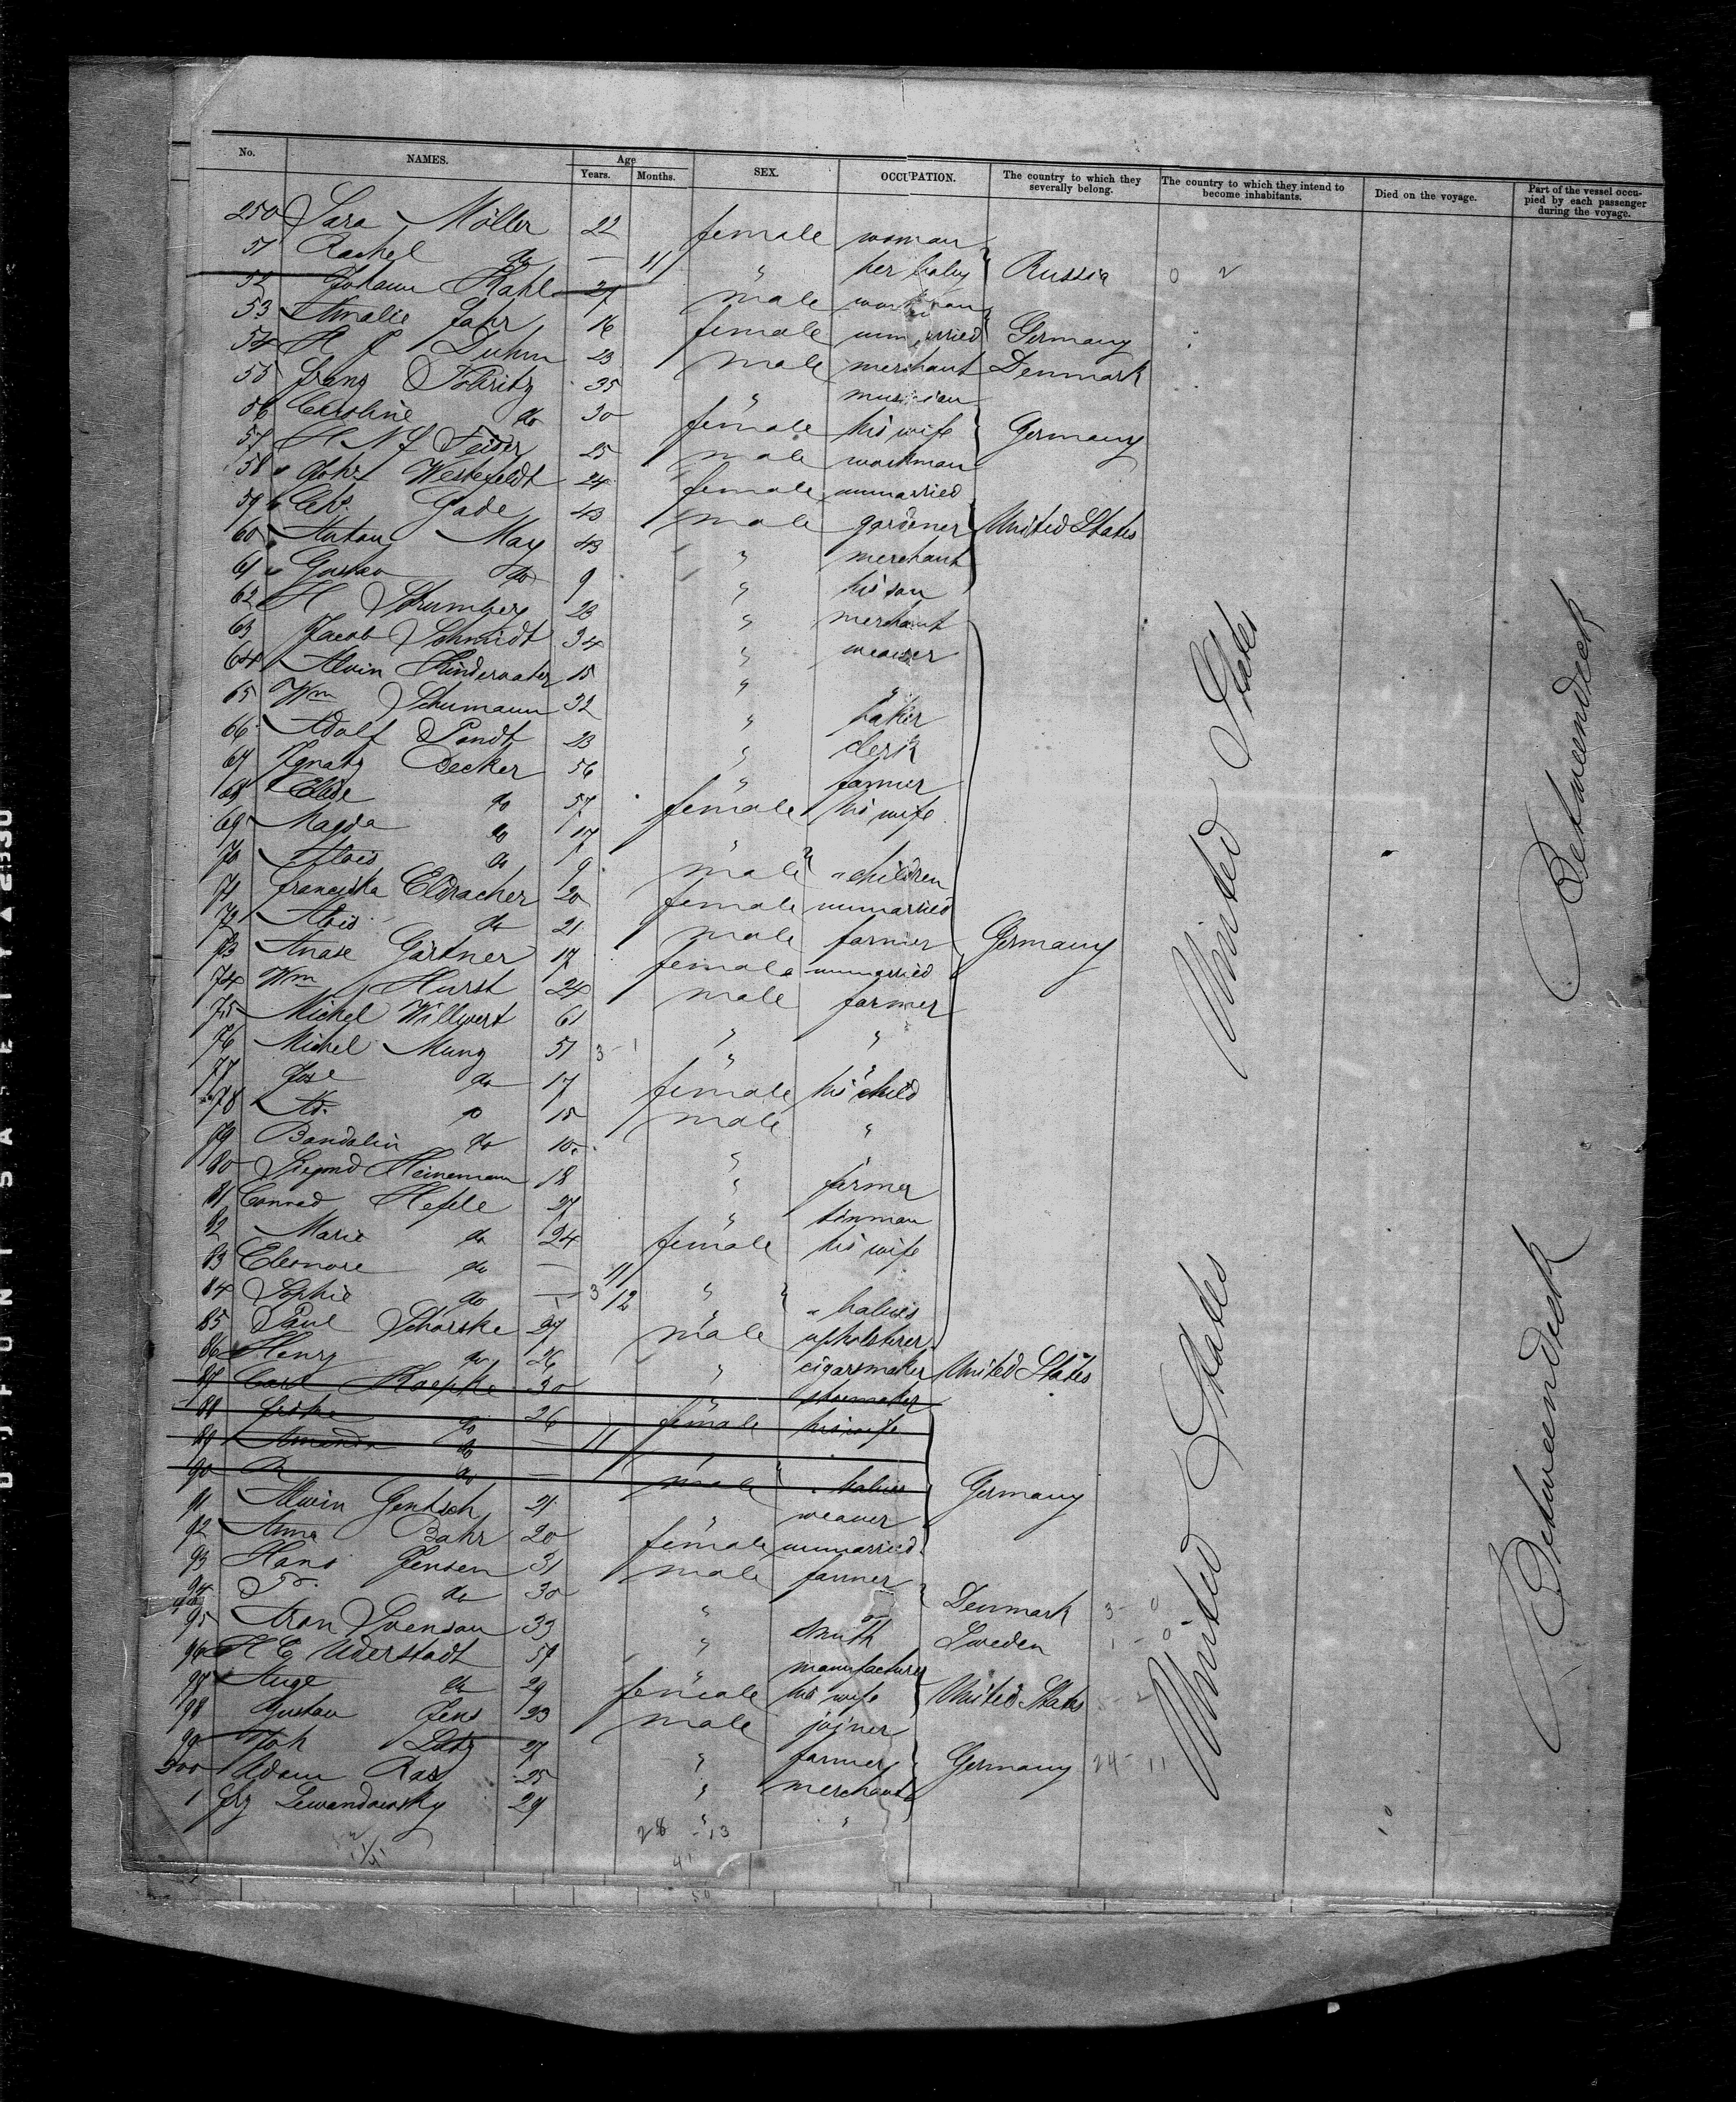 No. NAMES. Age Years. Months. SEX. OCCUPATION. The country to which they severally belong. The country to which they intend to become inhabitants. Died on the voyage. Part of the vessel occupied by each passenger during the voyage.
250 Sara Möller 22 female woman
51 Rachel do — 11 " her baby Russia 0 2
52 Johann Kahl 27 male workman
53 Amalie Jahr 16 female unmarried Germany
54 H J Duhm 23 male merchant Denmark
55 Franz Pohritz 35 " musician
56 Caroline do 30 female his wife Germany
57 H N J 25 male workman
58 Johx Westefeldt 24 female unmarried
59 Chr. Gade 43 male gardener United States
60 Anton May 43 " merchant
61 Gustav do 9 " his son
62 H Schumberg 23 " merchant
63 Jacob Schmidt 34 " weaver
64 Alwin Kindervater 15 " "
65 Wm Schumann 32 " baker
66 Adolf Pandt 23 " clerk
67 Ignatz Decker 56 " farmer
68 Elise do 57 female his wife
69 Magda do 17 "
70 Alois do 9 male " children
71 Franciska Elbracher 20 female unmarried
72 Alois do 21 male farmer Germany
73 Anase Gärtner 17 female unmarried
74 Wm Hurst 24 male farmer
75 Michel Willwert 61 " "
76 Michel Munz 51 3 - 1 " "
77 Jose do 17 female his child
78 Ad. do 15 male "
79 Bandolin do 10 " "
80 Siegmd Heinemann 18 " farmer
81 Conrad Hefele 27 " tinman
82 Marie do 24 female his wife
83 Eleonore do — 11 "
84 Sophie do — 3/12 " " babies
85 Paul Schorske 27 male upholsterer
86 Henry do 26 " cigarsmaker United States
87 Carl Koepke 30 " shoemaker
88 do 26 female his wife
89 Amanda do — 11 "
90 R do — male " babies Germany
91 Alwin Gentsch 21 " weaver
92 Anna Bahr 20 female unmarried
93 Hans Jensen 31 male farmer
94 do 30 " Denmark 3 - 0
95 Aron Svenson 33 " smith Sweden 1 - 0
96 H E Uderstadt 57 " manufacturer
97 Auge do 29 female his wife United States
98 Gustav Jens 23 male joiner
99 Joh Lutz 27 " farmer Germany 24 - 11
300 Adam Ras 25 " merchant
1 Frz Lewandowsky 29 " "
28 - 13
41
50
United States
United States
Betweendeck
Betweendeck